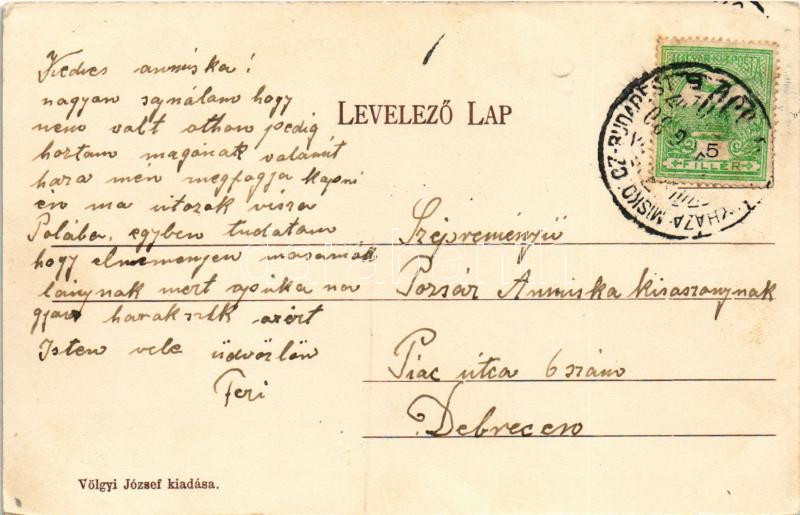 Kedves anniska!
nagyon sajnálam hogy
nem valt othan pedig
hoztam magának valamit
hara mén megfogja kapni
én ma útozok visza
Polába, egyben tudatam
hogy elmemenyen masamod
lánynak mert apúka na
gyon harakszik azért
Isten vele üdvözlön
Feri
LEVELEZŐ LAP
MAGYAR KIR. POSTA
5
FILLÉR
MISKOLCZ-BUDAPEST
Szépreményü
Pozsár Anniska kisaszonynak
Piac útca 6 szám
Debrecen
Völgyi József kiadása.